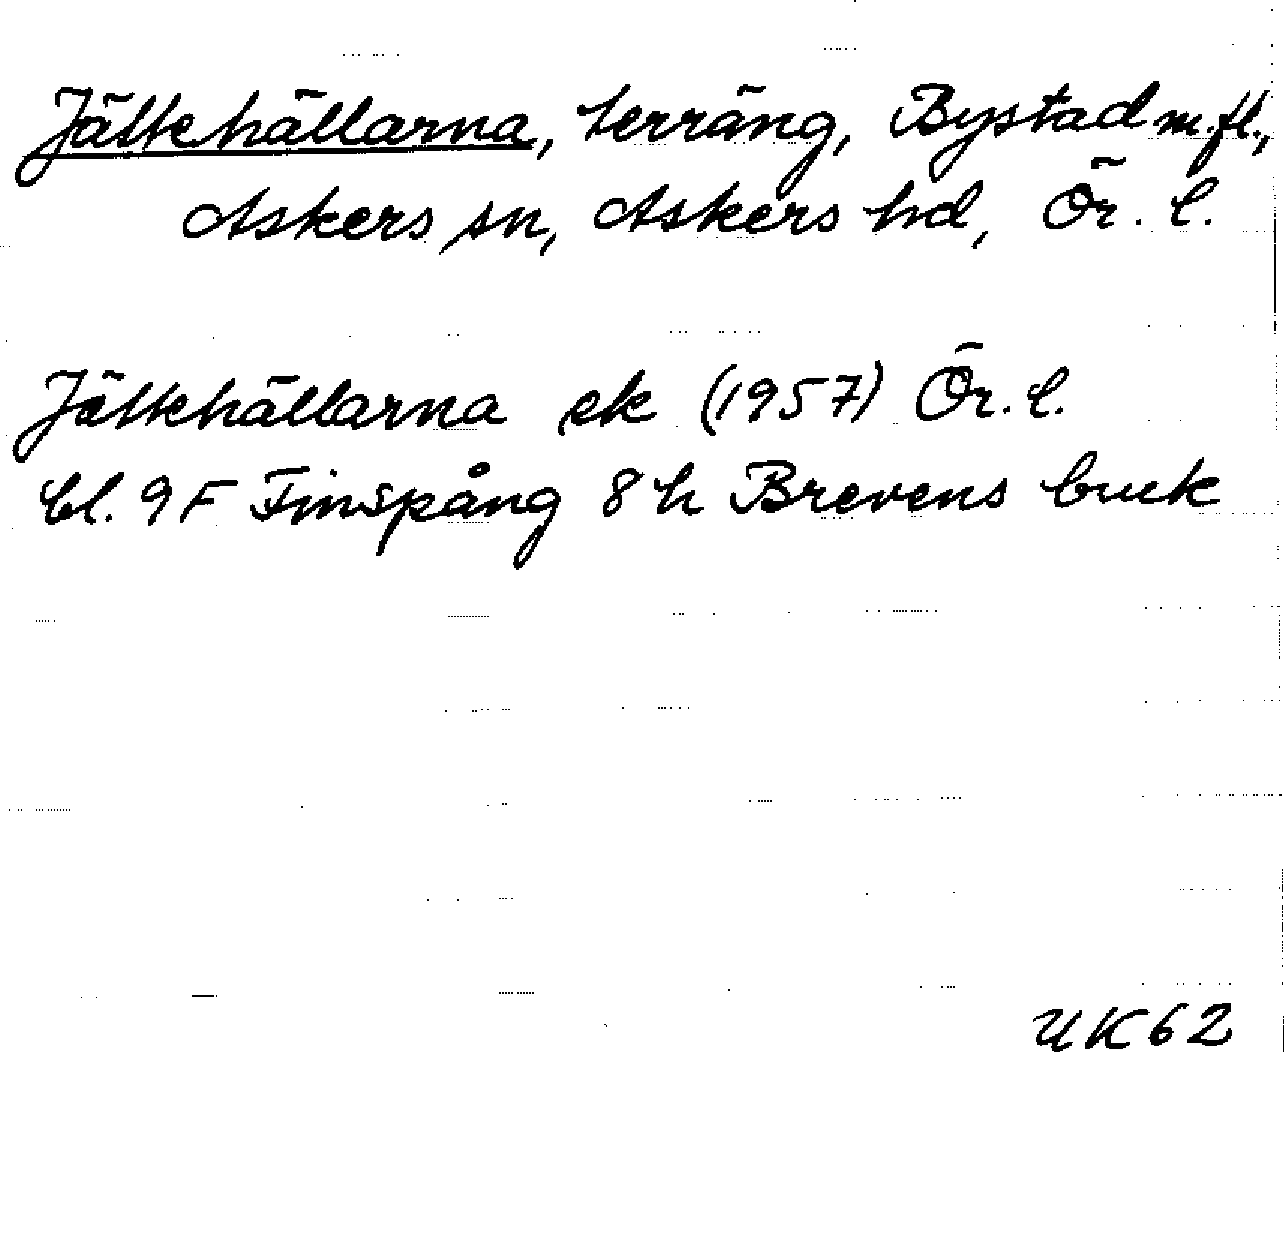 Jältehällarna, terräng, Bystad m.fl.,
Askers sn, Askers hd, Ör. l.
Jältehällarna ek (1957) Ör. l.
bl. 9 F Finspång 8 h Brevens bruk
UK 62